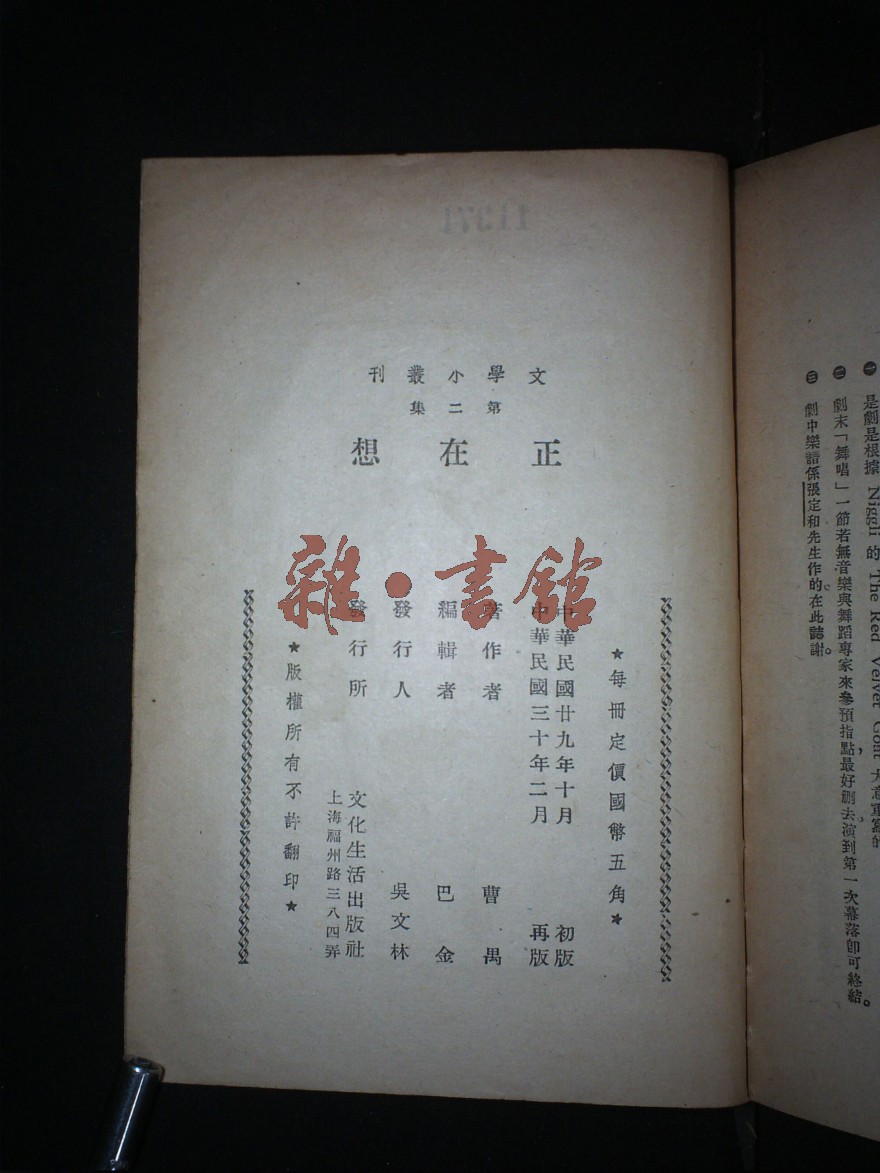 ㊀是劇是根據 Niggli 的 The Red Velvet Goat 大意重寫的
㊁劇末「舞唱」一節若無音樂與舞蹈專家來參預指點，最好刪去，演到第一次幕落卽可終結。
㊂劇中樂譜係張定和先生作的。在此誌謝。
文學小叢刊
第二集
正在想
★每冊定價國幣五角★
中華民國廿九年十月 初版
中華民國三十年二月 再版
著作者 曹禺
編輯者 巴金
發行人 吳文林
發行所 文化生活出版社
上海福州路三八四弄
★版權所有不許翻印★
雜·書館
11371